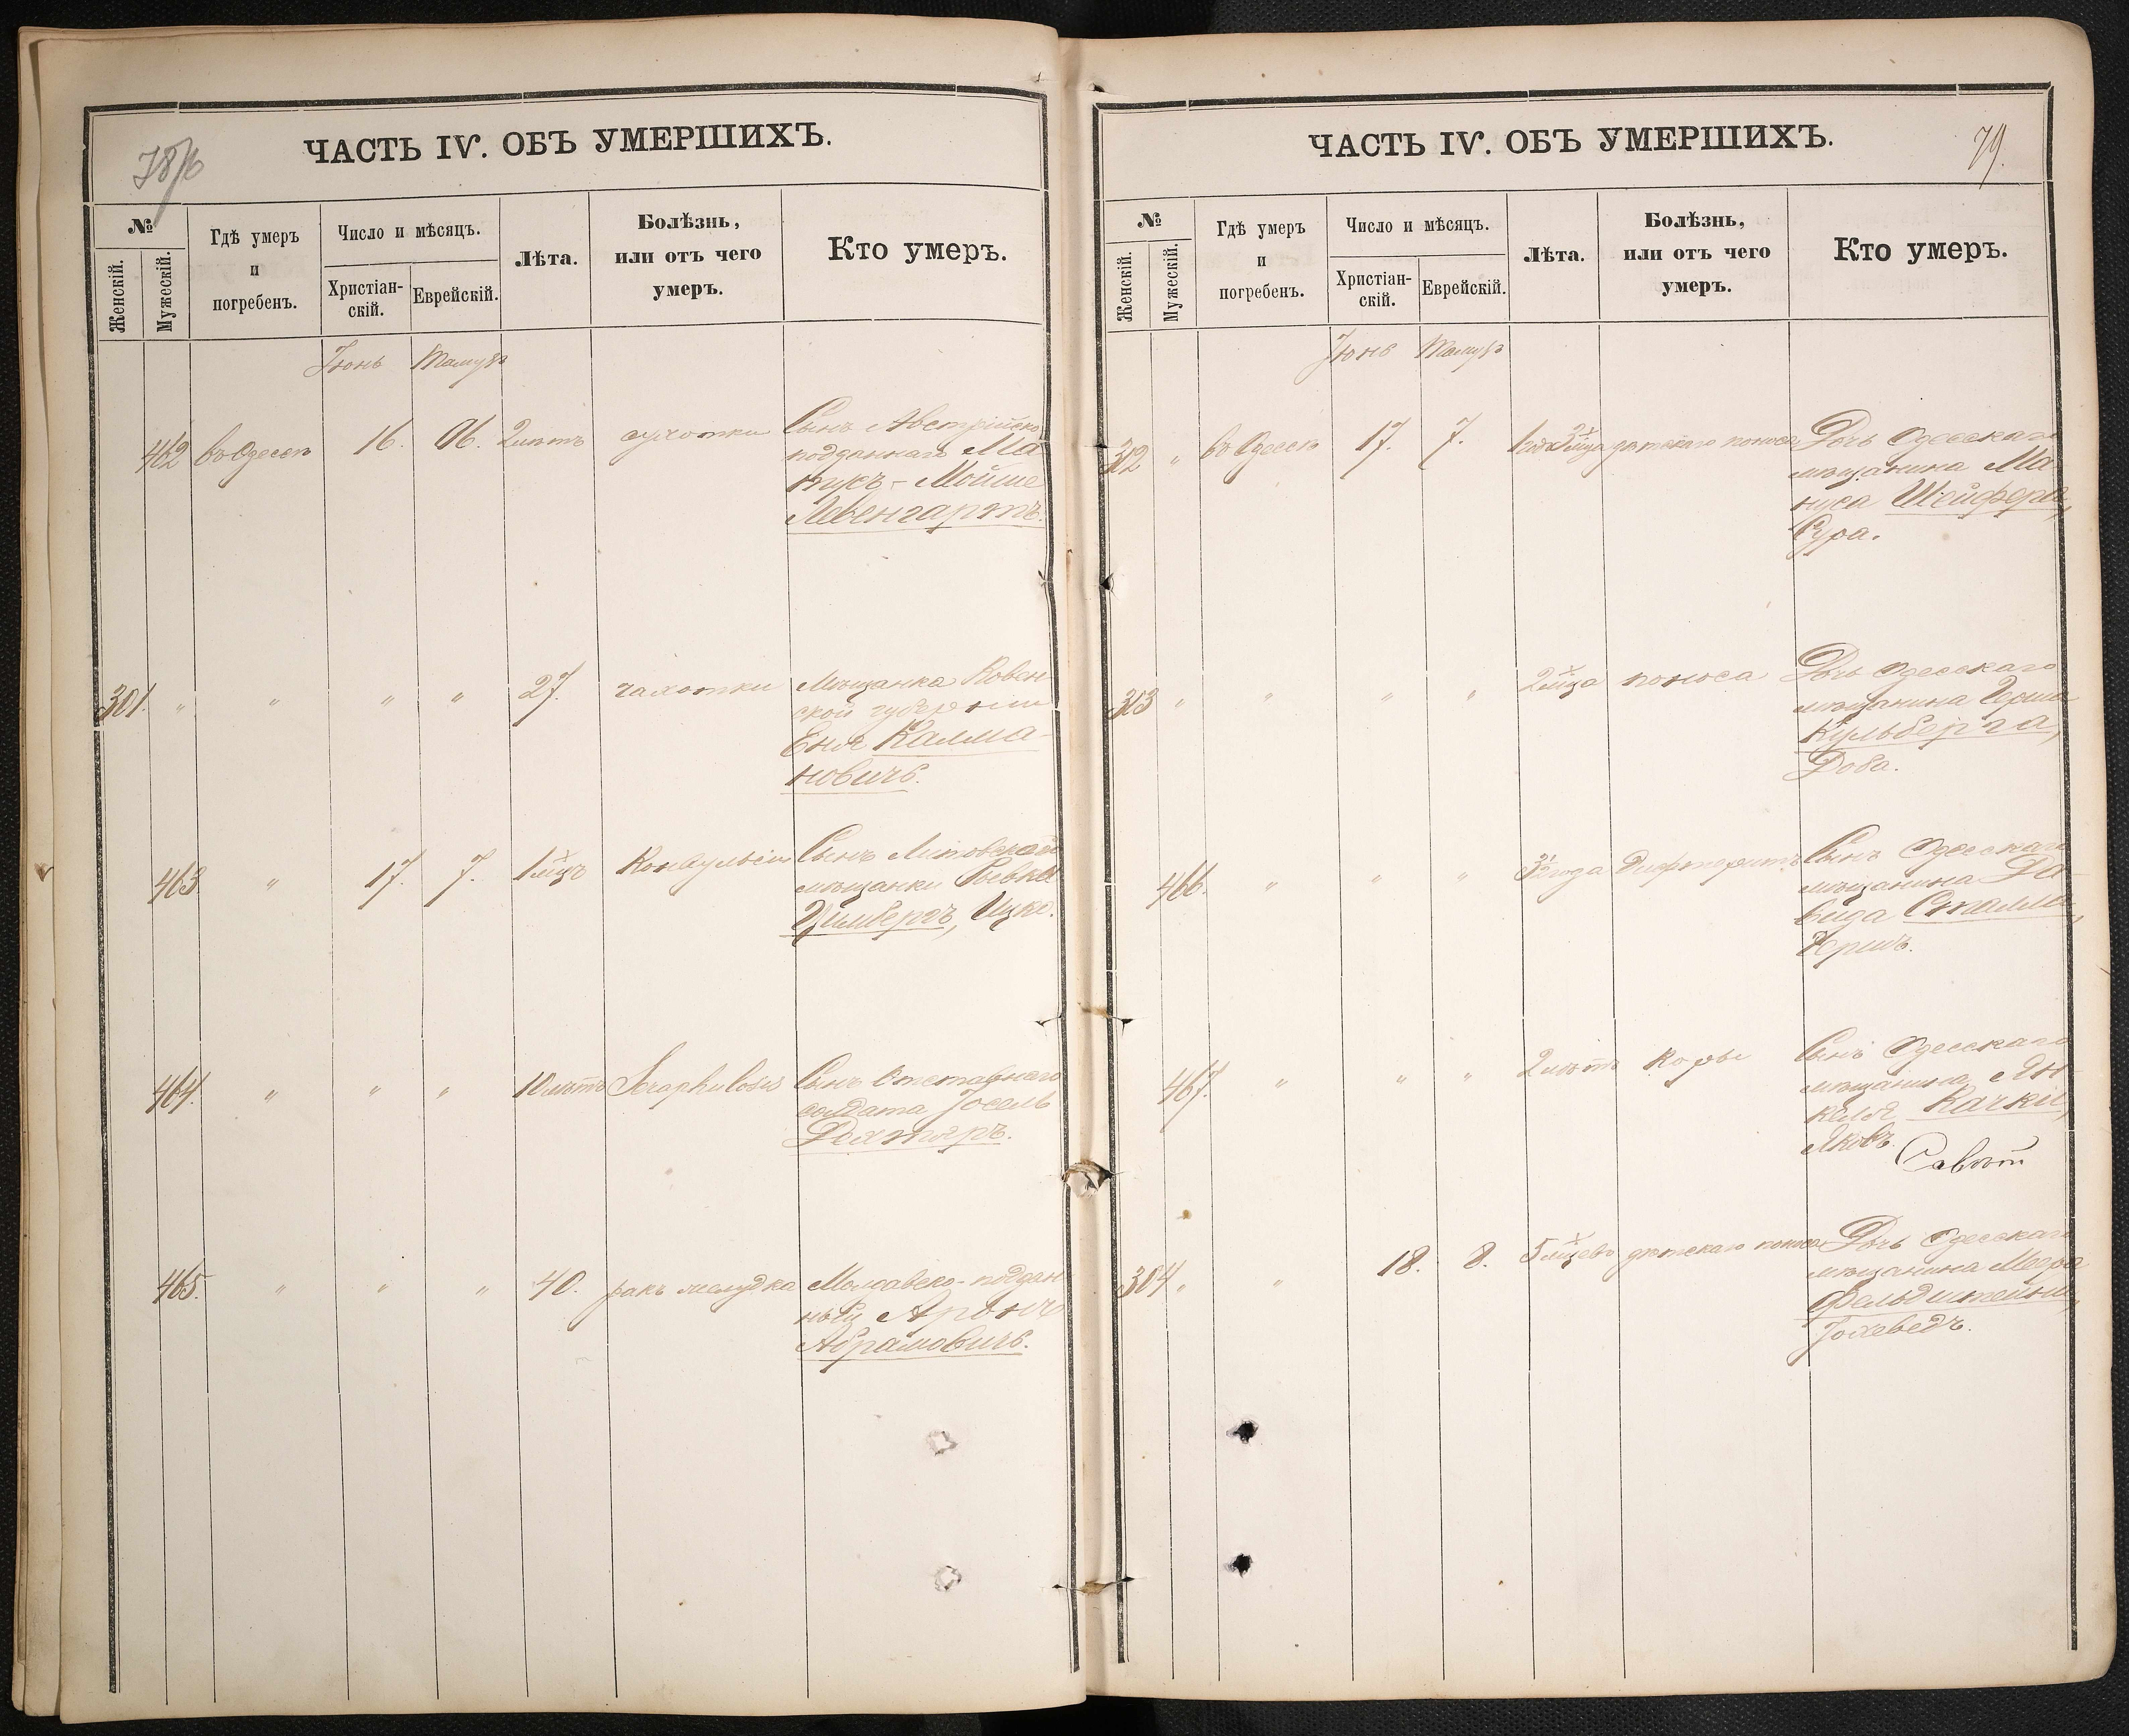 78/б
ЧАСТЬ IV. ОБЪ УМЕРШИХЪ.
№
Женскій.
Мужескій.
Гдѣ умеръ
и
погребенъ.
Число и мѣсяцъ.
Христіан-
скій.
Еврейскій.
Лѣта.
Болѣзнь,
или отъ чего
умеръ.
Кто умеръ.
Іюнь Тамузъ
462 въ Одессѣ 16. 6. 2 лѣтъ сухотки Сынъ Австрійско
подданнаго Ма
Мойше
Левенгартъ.
301. " " " " 27. чахотки Мѣщанка Ковен-
ской губерніи
Еня Калма-
новичъ.
463. " 17. 7. 1 мцъ Конвульсіи Сынъ Липовской
мѣщанки Ривки
Цимбергъ, Ицко.
464. " " " 10 лѣтъ Scraphulosis Сынъ Отставнаго
солдата Іосель
Дехтяръ.
465. " " " 40. ракъ желудка Молдавско-поддан-
ный Аронъ
Абрамовичъ.
79.
ЧАСТЬ IV. ОБЪ УМЕРШИХЪ.
№
Женскій.
Мужескій.
Гдѣ умеръ
и
погребенъ.
Число и мѣсяцъ.
Христіан-
скій.
Еврейскій.
Лѣта.
Болѣзнь,
или отъ чего
умеръ.
Кто умеръ.
Іюнь Тамузъ
302 " въ Одессѣ 17. 7. дѣтскаго поноса Дочь Одесскаго
мѣщанина Ма-
нуса Шейфера,
Сура.
303 " " " " 2 мца поноса Дочь Одесскаго
мѣщанина Герша
Кульберга,
Доба.
466. " " " 3½ года Дифтеритъ Сынъ Одесскаго
мѣщанина Да-
вида Сталма,
Гершъ.
467. " " " 2 лѣтъ Коры Сынъ Одесскаго
мѣщанина Ян-
келя Качки,
Яковъ.
304 " " 18. 8. 5 мцевъ дѣтскаго поноса Дочь Одесскаго
мѣщанина Меера
Фельдштейна,
Іохеведъ.